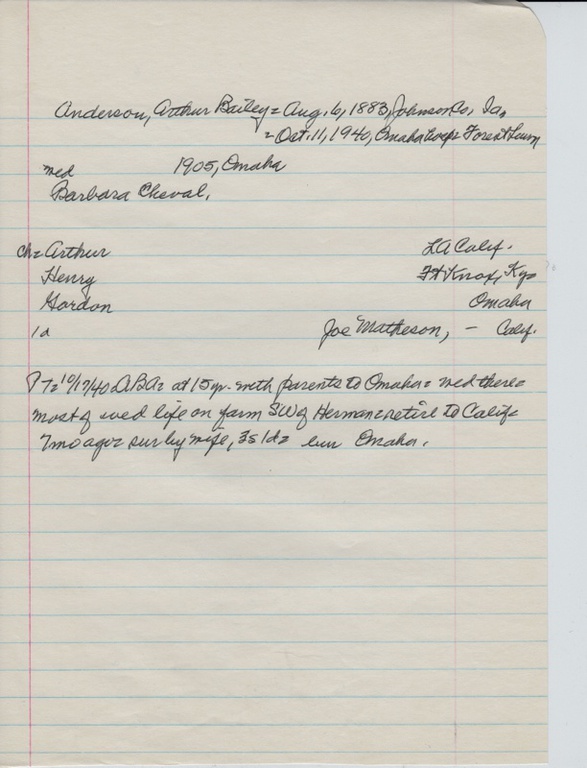 Anderson, Arthur Bailey = Aug. 6, 1883, Johnson Co, Ia.
= Oct. 11, 1940, Omaha Forest Lawn
wed 1905, Omaha
Barbara Cheval,
ch = Arthur LA Calif.
Henry Ft Knox, Ky =
Gordon Omaha
1 d Joe Matheson, - Calif.
PT = 10/17/40 ABA = at 15 yr. with parents to Omaha = wed there =
most of wed life on farm SW of Herman = retire to Calif =
7 mo ago = sur by wife, 3s 1d = bur Omaha.